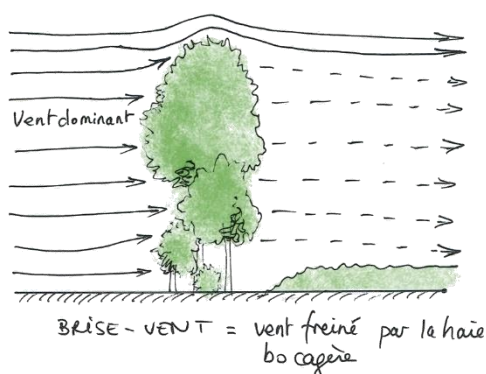 Vent dominant
BRISE-VENT = vent freiné par la haie
bocagère